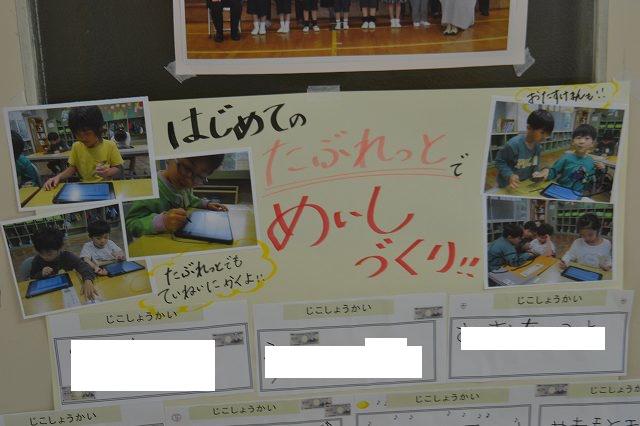 はじめての
たぶれっとで
めいし
づくり!!
おたすけまんも!!
たぶれっとでも
ていねいにかくよ!!
じこしょうかい
じこしょうかい
じこしょうかい
じこしょうかい
じこしょうかい
じこしょうかい
じこしょうかい